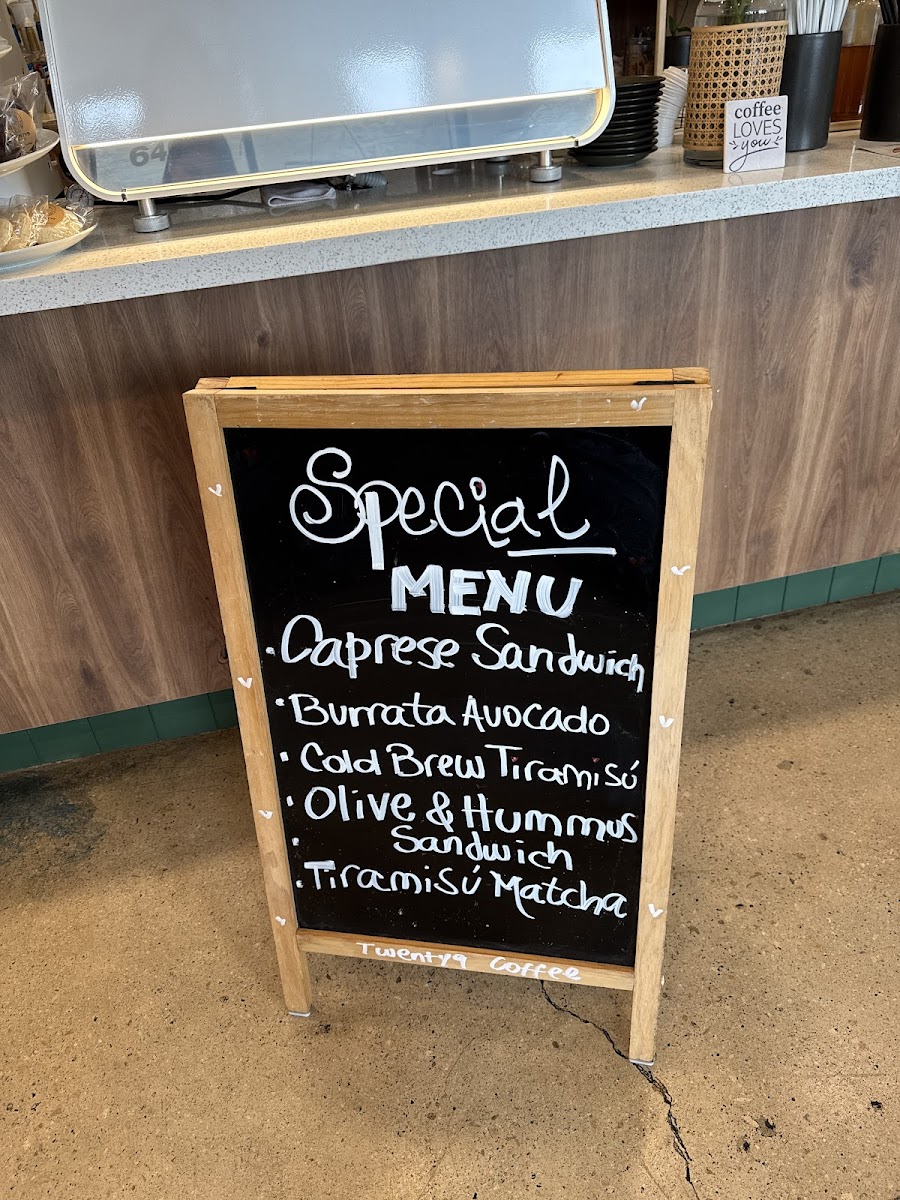 64
coffee
LOVES
you
Special
MENU
• Caprese Sandwich
• Burrata Avocado
• Cold Brew Tiramisú
• Olive & Hummus
Sandwich
• Tiramisú Matcha
Twenty9 Coffee